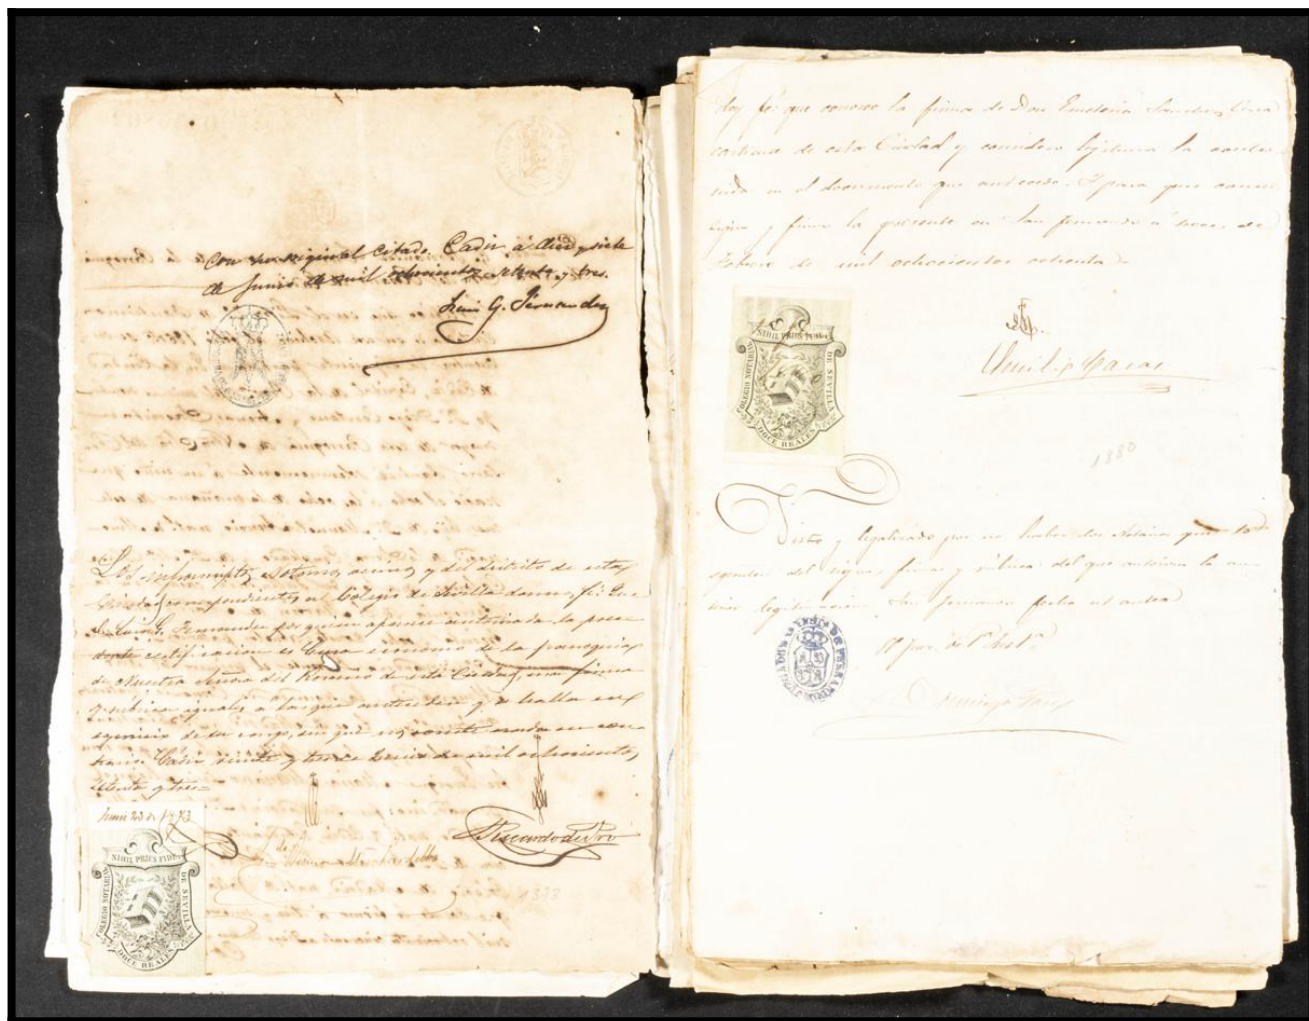 con su original citado. Cadiz a diez y siete
de Junio de mil ochocientos setenta y tres.
Luis G. Fernandez
Los infrascriptos Notarios y del distrito de esta
Ciudad, correspondientes al Colegio de Sevilla damos fé: Que
D. Luis G. Fernandez por quien aparece autorizada la prece
dente certificacion es Cura ecónomo de la parroquia
de Nuestra Señora del Rosario de esta Ciudad, cuya firma
y rubrica iguales a las que anteceden y se halla en
egercicio de su cargo, sin que nos conste nada en con
trario. Cadiz veinte y tres de Junio de mil ochocientos
setenta y tres=
Junio 23 de 1873
NIHIL PRIUS FIDE
COLEGIO NOTARIAL
DE SEVILLA
DOCE REALES
Ricardo de Pro
1873
Doy fé: que conozco la firma de Don Emeterio Sanchez, Cura
castrense de esta Ciudad y considero lejitima la conte
nida en el documento que antecede. Y para que conste
signo y firmo la presente en San Fernando a doce de
Febrero de mil ochocientos ochenta
NIHIL PRIUS FIDE
COLEGIO NOTARIAL
DE SEVILLA
DOCE REALES
1880
Visto y legalizado por no haber dos Notarios que
del signo, firma y rúbrica del que autoriza la an
terior legitimacion San Fernando fecha ut antea